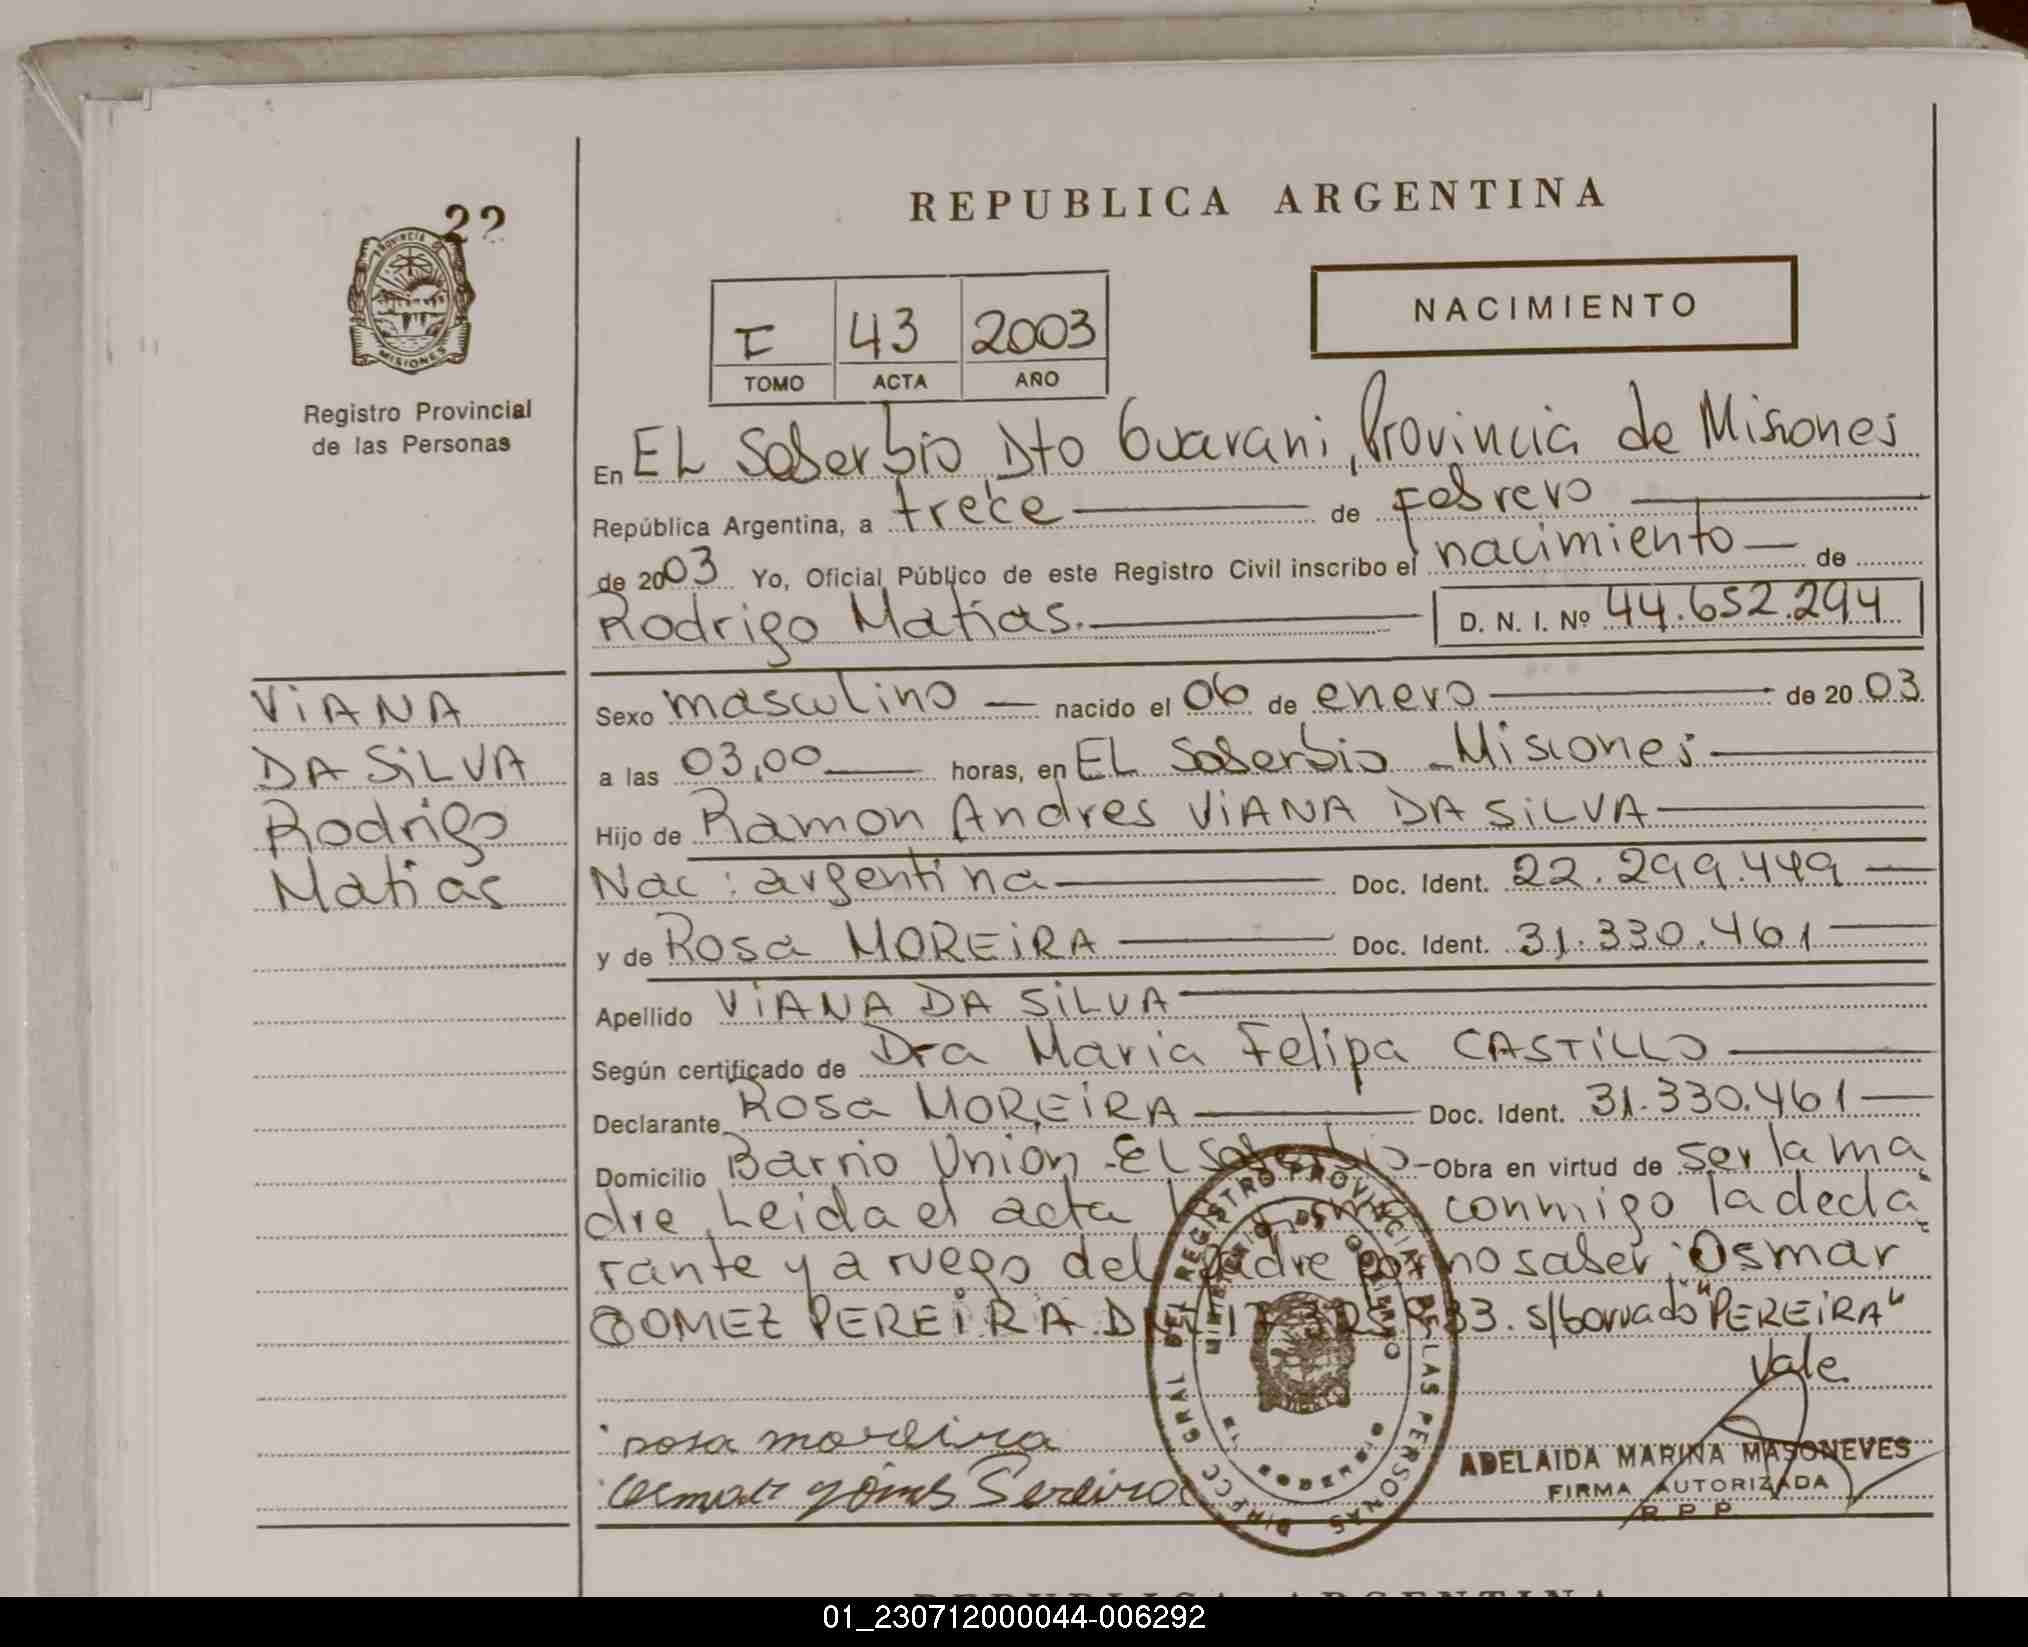 22
PROVINCIA DE
MISIONES
Registro Provincial
de las Personas
REPUBLICA ARGENTINA
NACIMIENTO
I 43 2003
TOMO ACTA AÑO
En EL Soberbio Dto Guarani, Provincia de Misiones
República Argentina, a trece de Febrero
de 2003 Yo, Oficial Público de este Registro Civil inscribo el nacimiento de
Rodrigo Matias. D. N. I. Nº 44.652.294
VIANA
DA SILVA
Rodrigo
Matias
Sexo masculino nacido el 06 de enero de 2003
a las 03,00 horas, en EL Soberbio - Misiones
Hijo de Ramon Andres VIANA DA SILVA
Nac: argentina Doc. Ident. 22.299.449
y de Rosa MOREIRA Doc. Ident. 31.330.461
Apellido VIANA DA SILVA
Según certificado de Dra Maria Felipa CASTILLO
Declarante Rosa MOREIRA Doc. Ident. 31.330.461
Domicilio Barrio Unión - El Soberbio - Obra en virtud de ser la ma
dre, Leida el acta firma conmigo la decla
rante y a ruego del padre por no saber: Osmar
GOMEZ PEREIRA DNI 17 33. s/borrado "PEREIRA"
Vale
rosa moreira
ADELAIDA MARINA MASONEVES
FIRMA AUTORIZADA
R. P. P.
GRAL DEL REGISTRO PROVINCIAL DE LAS PERSONAS
MINISTERIO DE GOBIERNO
REPUBLICA ARGENTINA
01_230712000044-006292